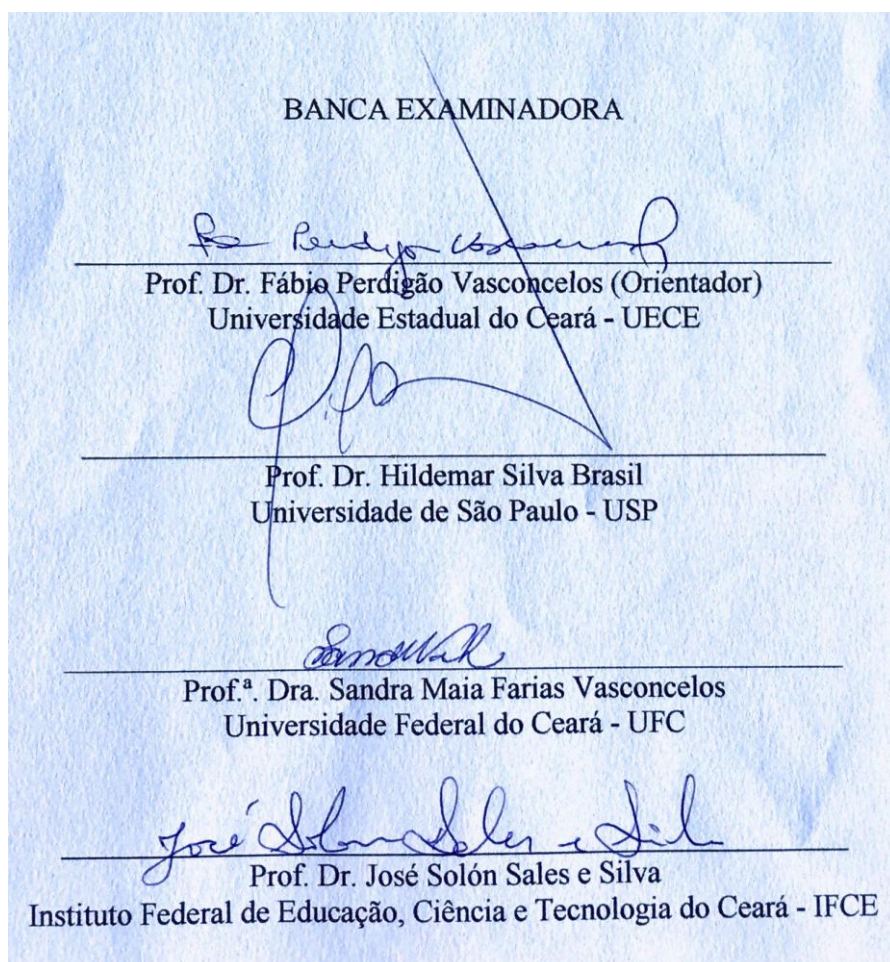 BANCA EXAMINADORA
Prof. Dr. Fábio Perdigão Vasconcelos (Orientador)
Universidade Estadual do Ceará - UECE
Prof. Dr. Hildemar Silva Brasil
Universidade de São Paulo - USP
Prof.ª. Dra. Sandra Maia Farias Vasconcelos
Universidade Federal do Ceará - UFC
José Solon Sales e Silva
Prof. Dr. José Solón Sales e Silva
Instituto Federal de Educação, Ciência e Tecnologia do Ceará - IFCE